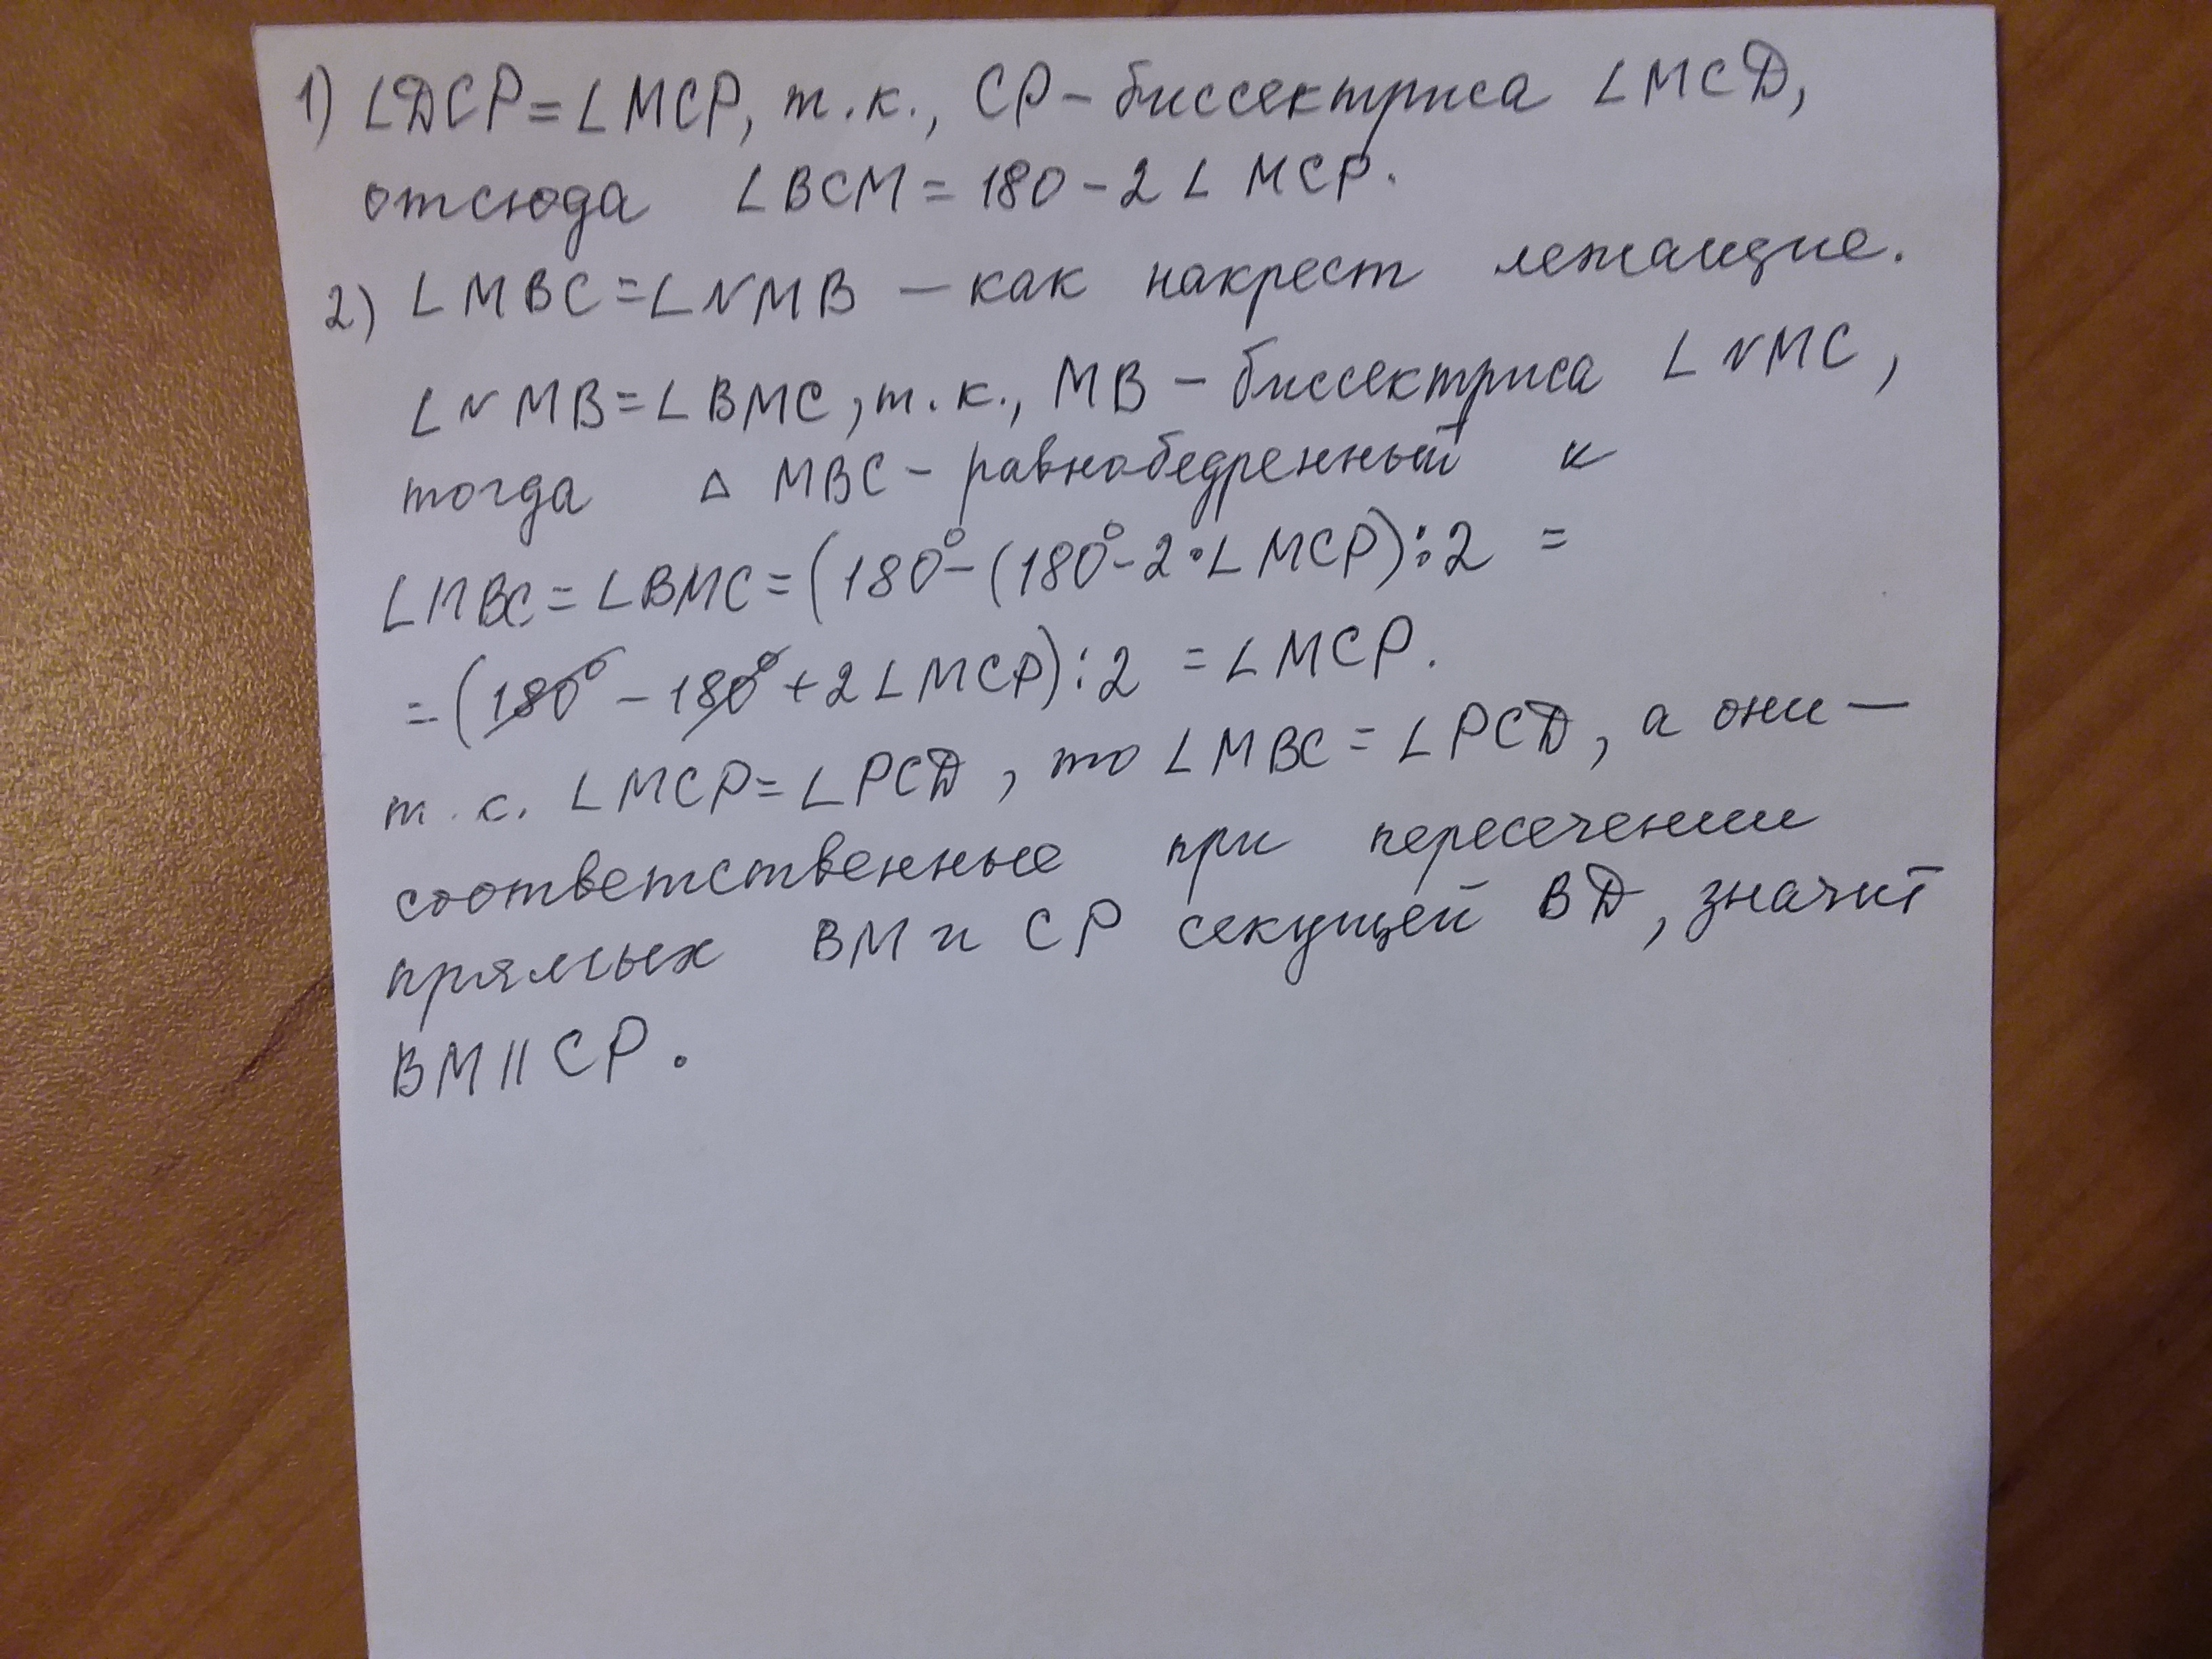 1) ∠DCP=∠MCP, т.к., CP – биссектриса ∠MCD,
отсюда ∠BCM = 180 – 2∠MCP.
2) ∠MBC=∠NMB – как накрест лежащие.
∠NMB=∠BMC, т.к., MB – биссектриса ∠NMC,
тогда △MBC – равнобедренный и
∠MBC=∠BMC=(180°–(180°–2•∠MCP):2 =
=(180° – 180° + 2∠MCP):2 = ∠MCP.
т.к. ∠MCP=∠PCD, то ∠MBC = ∠PCD, а они –
соответственные при пересечении
прямых BM и CP секущей BD, значит
BM||CP.